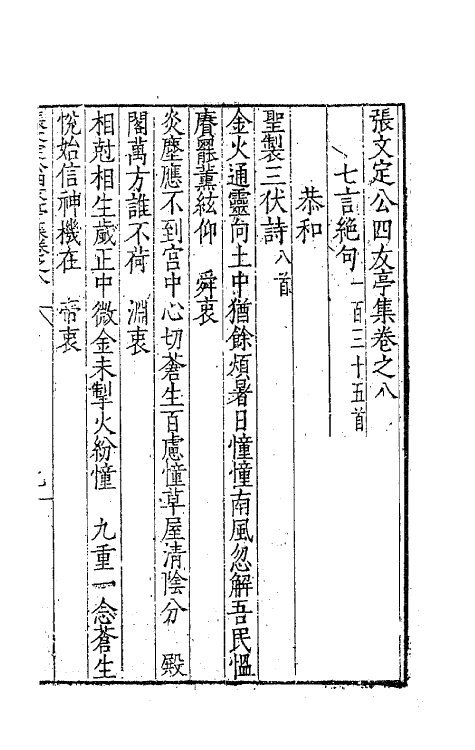 張文定公四友亭集卷之八
七言絕句一百三十五首
恭和
聖製三伏詩八首
金火通靈向土中猶餘煩暑日憧憧南風忽解吾民慍
賡罷薰絃仰　舜衷
炎塵應不到宮中心切蒼生百慮憧草屋清陰分　殿
閣萬方誰不荷　淵衷
相尅相生歲正中微金未掣火紛憧　九重一念蒼生
恱始信神機在　帝衷